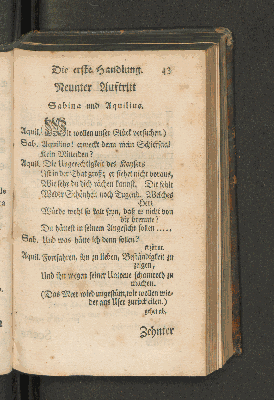 Die erste Handlung. 43
Neunter Auftritt
Sabina und Aquilius.
Aquil. (Wir wollen unser Glück versuchen.)
Sab. Aquilius! erweckt denn mein Schicksal
Kein Mitleiden?
Aquil. Die Ungerechtigkeit des Kaysers
Ist in der That groß; er siehet nicht voraus,
Wie sehr du dich rächen kannst. Dir fehlt
Weder Schönheit noch Tugend. Welches
Herz
Würde wohl so kalt seyn, daß es nicht von
dir brennte?
Du hättest in seinem Angesicht sollen .....
Sab. Und was hätte ich denn sollen?
erzürnt.
Aquil. Fortfahren, ihn zu lieben, Beständigkeit zu
zeigen,
Und ihn wegen seiner Untreue schamroth zu
machen.
(Das Meer wird ungestüm, wir wollen wie-
der ans Ufer zurück eilen.)
gehet ab.
Zehnter